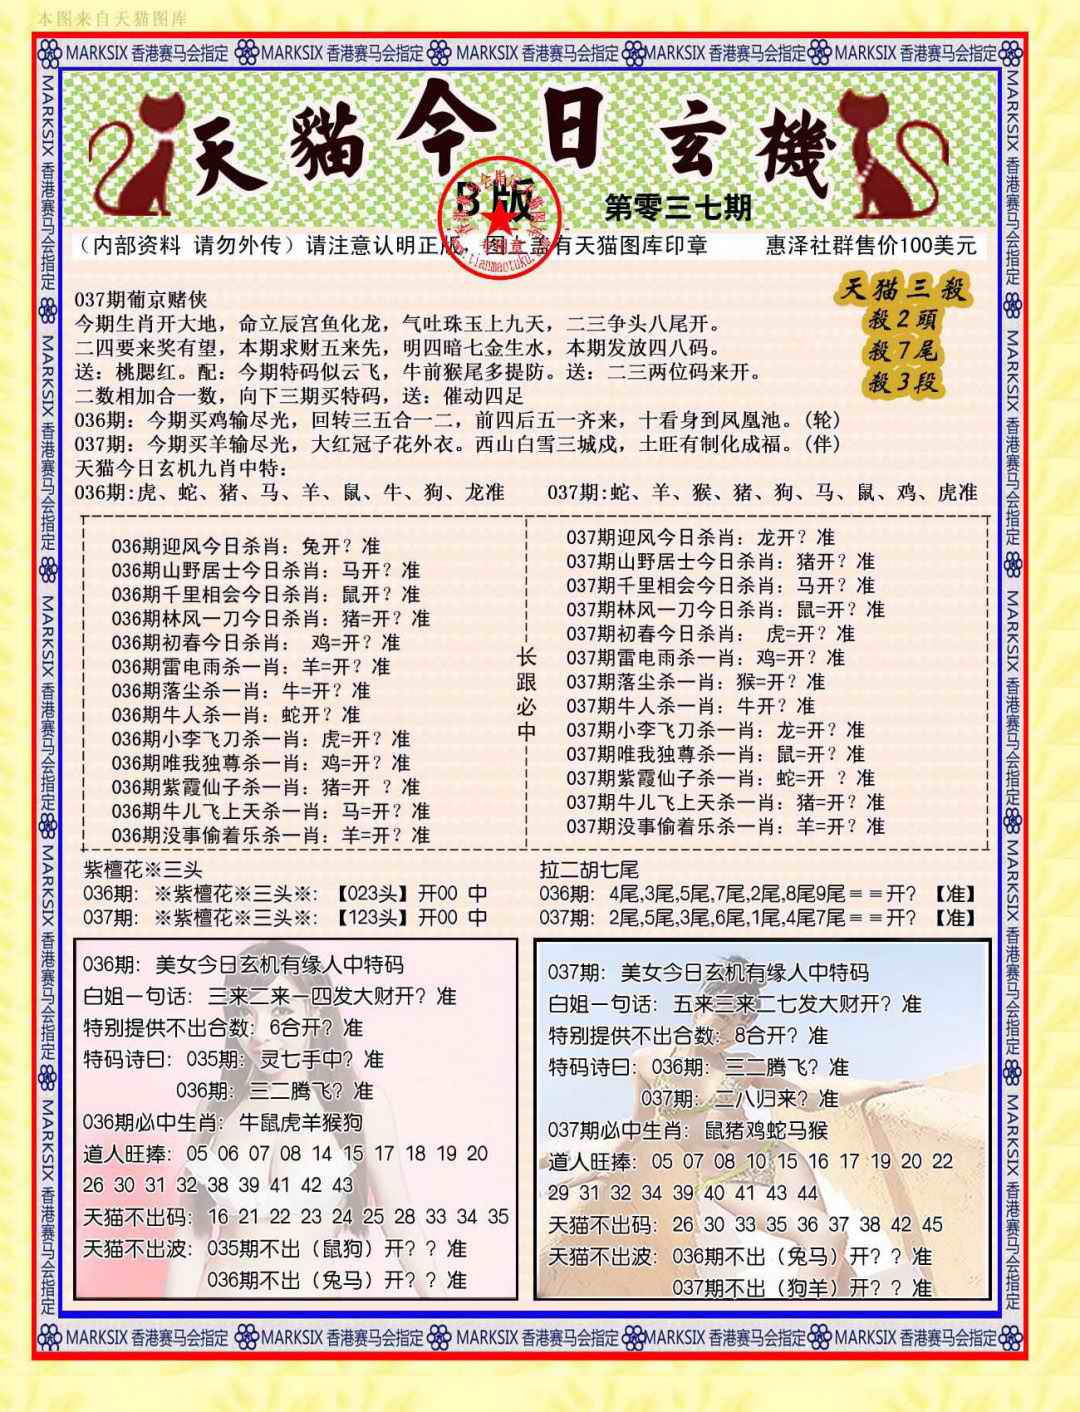 本图来自天猫图库
MARKSIX 香港赛马会指定 MARKSIX 香港赛马会指定 MARKSIX 香港赛马会指定 MARKSIX 香港赛马会指定 MARKSIX 香港赛马会指定
天貓今日玄機
B版
第零三七期
(内部资料 请勿外传)请注意认明正版,图上盖有天猫图库印章 惠泽社群售价100美元
天猫三殺
殺2頭
殺7尾
殺3段
037期葡京赌侠
今期生肖开大地,命立辰宫鱼化龙,气吐珠玉上九天,二三争头八尾开。
二四要来奖有望,本期求财五来先,明四暗七金生水,本期发放四八码。
送:桃腮红。配:今期特码似云飞,牛前猴尾多提防。送:二三两位码来开。
二数相加合一数,向下三期买特码,送:催动四足
036期:今期买鸡输尽光,回转三五合一二,前四后五一齐来,十看身到凤凰池。(轮)
037期:今期买羊输尽光,大红冠子花外衣。西山白雪三城戍,土旺有制化成福。(伴)
天猫今日玄机九肖中特:
036期:虎、蛇、猪、马、羊、鼠、牛、狗、龙准 037期:蛇、羊、猴、猪、狗、马、鼠、鸡、虎准
036期迎风今日杀肖:兔开?准
036期山野居士今日杀肖:马开?准
036期千里相会今日杀肖:鼠开?准
036期林风一刀今日杀肖:猪=开?准
036期初春今日杀肖: 鸡=开?准
036期雷电雨杀一肖:羊=开?准
036期落尘杀一肖:牛=开?准
036期牛人杀一肖:蛇开?准
036期小李飞刀杀一肖:虎=开?准
036期唯我独尊杀一肖:鸡=开?准
036期紫霞仙子杀一肖:猪=开 ?准
036期牛儿飞上天杀一肖:马=开?准
036期没事偷着乐杀一肖:羊=开?准
长跟必中
037期迎风今日杀肖:龙开?准
037期山野居士今日杀肖:猪开?准
037期千里相会今日杀肖:马开?准
037期林风一刀今日杀肖:鼠=开?准
037期初春今日杀肖: 虎=开?准
037期雷电雨杀一肖:鸡=开?准
037期落尘杀一肖:猴=开?准
037期牛人杀一肖:牛开?准
037期小李飞刀杀一肖:龙=开?准
037期唯我独尊杀一肖:鼠=开?准
037期紫霞仙子杀一肖:蛇=开 ?准
037期牛儿飞上天杀一肖:猪=开?准
037期没事偷着乐杀一肖:羊=开?准
紫檀花※三头
036期: ※紫檀花※三头※: 【023头】开00 中
037期: ※紫檀花※三头※: 【123头】开00 中
拉二胡七尾
036期: 4尾,3尾,5尾,7尾,2尾,8尾9尾==开? 【准】
037期: 2尾,5尾,3尾,6尾,1尾,4尾7尾==开? 【准】
036期: 美女今日玄机有缘人中特码
白姐一句话: 三来二来一四发大财开?准
特别提供不出合数: 6合开?准
特码诗曰: 035期: 灵七手中?准
036期: 三二腾飞?准
036期必中生肖: 牛鼠虎羊猴狗
道人旺捧: 05 06 07 08 14 15 17 18 19 20
26 30 31 32 38 39 41 42 43
天猫不出码: 16 21 22 23 24 25 28 33 34 35
天猫不出波: 035期不出(鼠狗)开??准
036期不出(兔马)开??准
037期: 美女今日玄机有缘人中特码
白姐一句话: 五来三来二七发大财开?准
特别提供不出合数: 8合开?准
特码诗曰: 036期: 三二腾飞?准
037期: 二八归来?准
037期必中生肖: 鼠猪鸡蛇马猴
道人旺捧: 05 07 08 10 15 16 17 19 20 22
29 31 32 34 39 40 41 43 44
天猫不出码: 26 30 33 35 36 37 38 42 45
天猫不出波: 036期不出(兔马)开??准
037期不出(狗羊)开??准
MARKSIX 香港赛马会指定 MARKSIX 香港赛马会指定 MARKSIX 香港赛马会指定 MARKSIX 香港赛马会指定 MARKSIX 香港赛马会指定
MARKSIX 香港赛马会指定 MARKSIX 香港赛马会指定 MARKSIX 香港赛马会指定 MARKSIX 香港赛马会指定 MARKSIX 香港赛马会指定
MARKSIX 香港赛马会指定 MARKSIX 香港赛马会指定 MARKSIX 香港赛马会指定 MARKSIX 香港赛马会指定 MARKSIX 香港赛马会指定